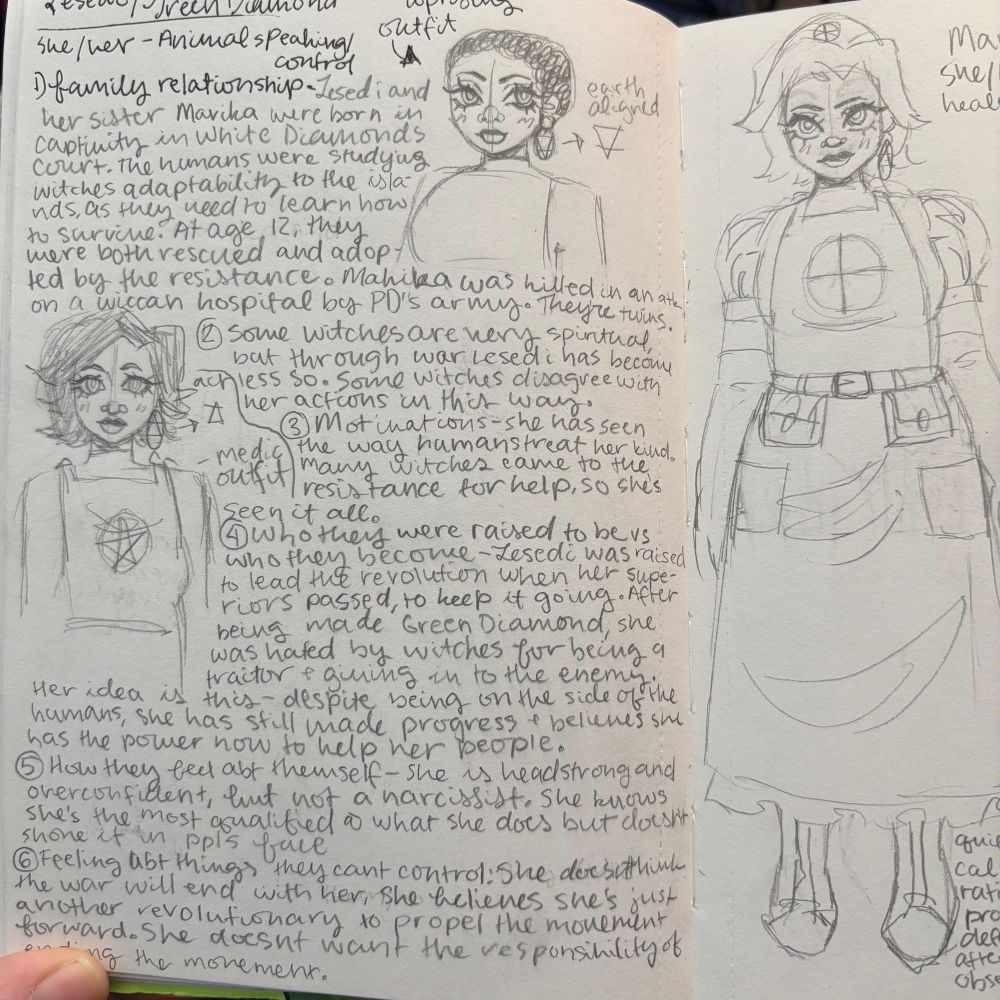 Lesedi/Green Diamond
she/her - Animal speaking/
control
uprising
outfit
1) family relationship - Lesedi and
her sister Marika were born in
captivity in White Diamonds
court. The humans were studying
witches adaptability to the isla-
nds, as they need to learn how
to survive. At age 12, they
were both rescued and adop-
ted by the resistance. Mahika was killed in an
on a wiccan hospital by PD's army. They're twins.
earth
aligned
② Some witches are very spiritual,
but through war Lesedi has become
less so. Some witches disagree with
her actions in this way.
③ Motivations - she has seen
the way humans treat her kind.
many witches came to the
resistance for help, so she's
seen it all.
medic
outfit
④ Who they were raised to be vs
who they become - Lesedi was raised
to lead the revolution when her supe-
riors passed, to keep it going. After
being made Green Diamond, she
was hated by witches for being a
traitor + giving in to the enemy.
Her idea is this - despite being on the side of the
humans, she has still made progress + believes she
has the power now to help her people.
⑤ How they feel abt themself - she is headstrong and
overconfident, but not a narcissist. She knows
she's the most qualified @ what she does but doesn't
shove it in ppl's face
⑥ Feeling abt things they cant control: She doesn't think
the war will end with her, she believes she's just
another revolutionary to propel the movement
forward. She doesnt want the responsibility of
ending the movement.
Ma
she/
hea
qui
cal
rat
pro
def
afte
obse